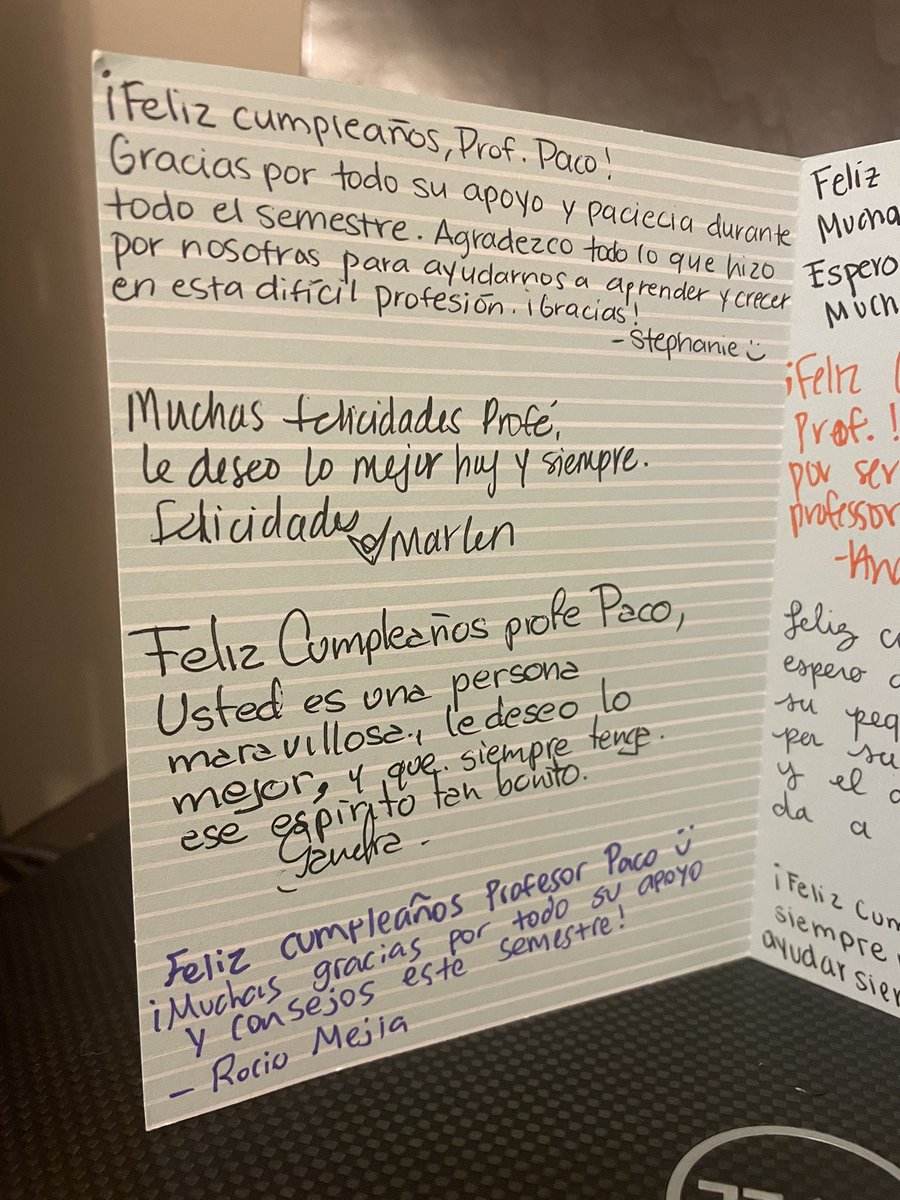 ¡Feliz cumpleaños, Prof. Paco!
Gracias por todo su apoyo y paciecia durante
todo el semestre. Agradezco todo lo que hizo
por nosotras para ayudarnos a aprender y crecer
en esta difícil profesión. ¡Gracias!
- Stephanie
Muchas felicidades Profé,
le deseo lo mejor huy y siempre.
Felicidades Marlen
Feliz Cumpleaños profe Paco,
Usted es una persona
maravillosa, le deseo lo
mejor, y que siempre tenga
ese espirito tan bonito.
¡Feliz cumpleaños Profesor Paco
¡Muchas gracias por todo su apoyo
y consejos este semestre!
- Rocio Mejia
Feliz
Mucha
Espero
Much
¡Feliz
Prof. !
por ser
professor
feliz
espero
su peq
por su
y el
da a
¡Feliz Cum
siempre
ayudar sien